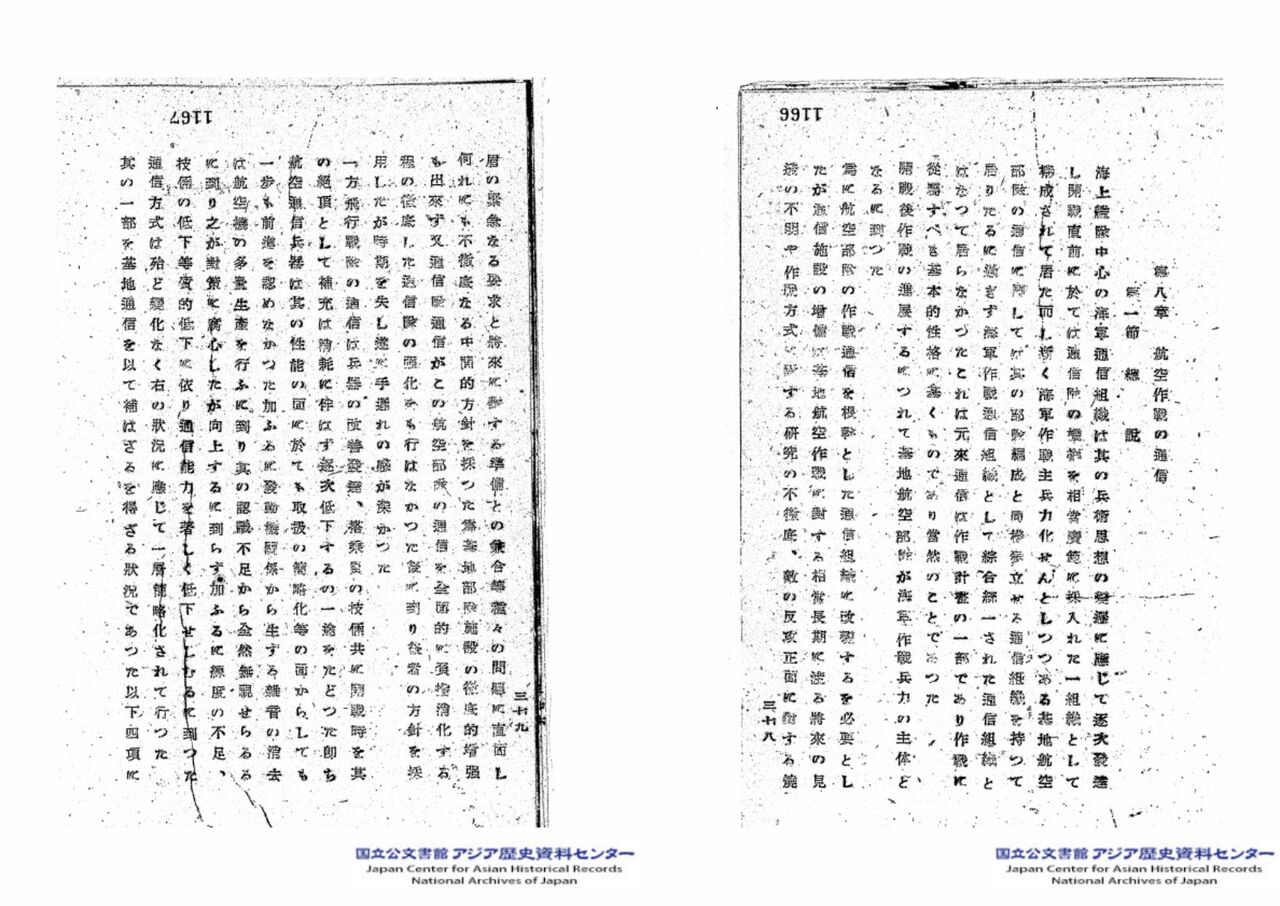 1166
第八章 航空作戦の通信
第一節 總說
海上艦隊中心の海軍通信組織は其の兵術思想の變遷に應じて逐次發達
し開戰直前に於ては通信隊の機構を相當廣範に採入れた一組織として
構成されて居た而し漸く海軍作戰主兵力化せんとしつつある基地航空
部隊の通信に關しては其の部隊編成と同樣獨立せる通信組織を持つて
居りたるに過ぎず海軍作戰通信組織として綜合統一された通信組織と
はなつて居らなかつたこれは元來通信は作戰計畫の一部であり作戰に
從屬すべき基本的性格に基くものであり當然のことであつた
開戰後作戰の進展するにつれて基地航空部隊が海軍作戰兵力の主体と
なるに到つた
爲に航空部隊の作戰通信を根幹とした通信組織に改變するを必要とし
たが通信施設の增備は基地航空作戰に對する相當長期に渡る將來の見
透の不明や作戰方式に關する硏究の不徹底、敵の反攻正面に對する
三十八
1167
眉の緊急なる要求と將來に對する準備との兼合等種々の問題に直面し
何れにも不徹底なる中間的方針を採つた爲基地部隊施設の徹底的增强
も出來ず又通信隊通信がこの航空部隊の通信を全面的に肩替消化する
程の徹底した通信隊の强化をも行はなかつた後に到り後者の方針を採
用したが時期を失し遂に手遲れの感が深かつた
一方飛行戰隊の通信は兵器の改善發達、搭乘員の技倆共に開戰時を其
の絕頂として補充は消耗に伴はず逐次低下するの一途をたどつた卽ち
航空通信兵器は其の性能の面に於ても取扱の簡略化等の面からしても
一步も前進を認めなかつた加ふるに發動機關係から生ずる雜音の消去
は航空機の多量生產を行ふに到り其の認識不足から全然無視せらるる
に到り之が對策に腐心したが向上するに到らず加ふるに練度の不足、
技倆の低下等質的低下に依り通信能力を著しく低下せしむるに到つた
通信方式は殆ど變化なく右の狀況に應じて一層簡略化されて行つた
其の一部を基地通信を以て補はざるを得ざる狀況であつた以下四項に
三十九
国立公文書館 アジア歴史資料センター
Japan Center for Asian Historical Records
National Archives of Japan
国立公文書館 アジア歴史資料センター
Japan Center for Asian Historical Records
National Archives of Japan